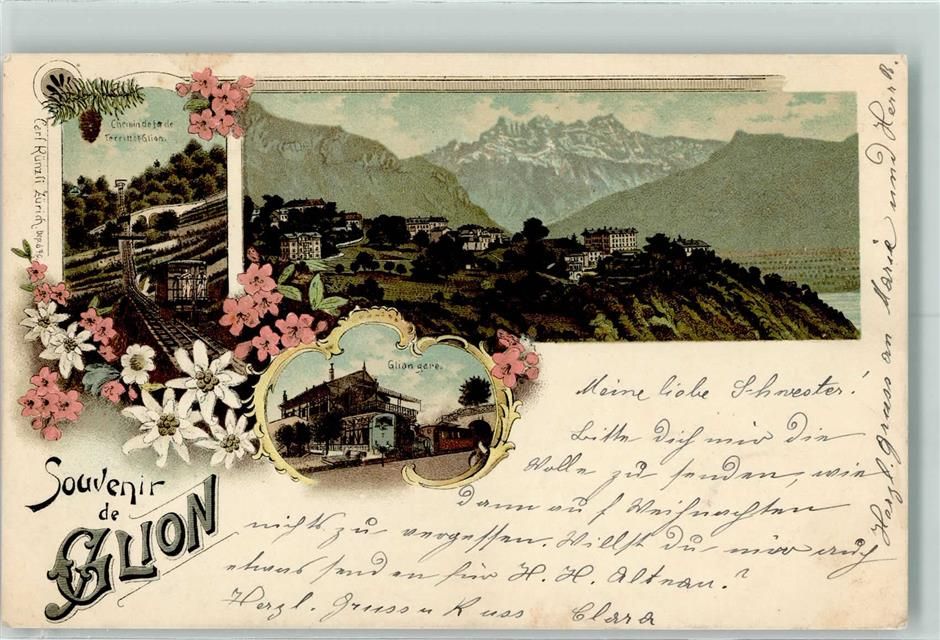 Chemin de fer de
Territet-Glion.
Carl Künzli Zürich
Glion gare.
Souvenir
de
GLION
Meine liebe Schwester!
Bitte dich mir die
Wolle zu senden, wie
dann auf Weihnachten
nichts zu vergessen. Willst du mir auch
etwas senden für H. H. Altnau?
Herzl. Gruss u Kuss Clara
Herzl. Gruss an Maria und Herr R.